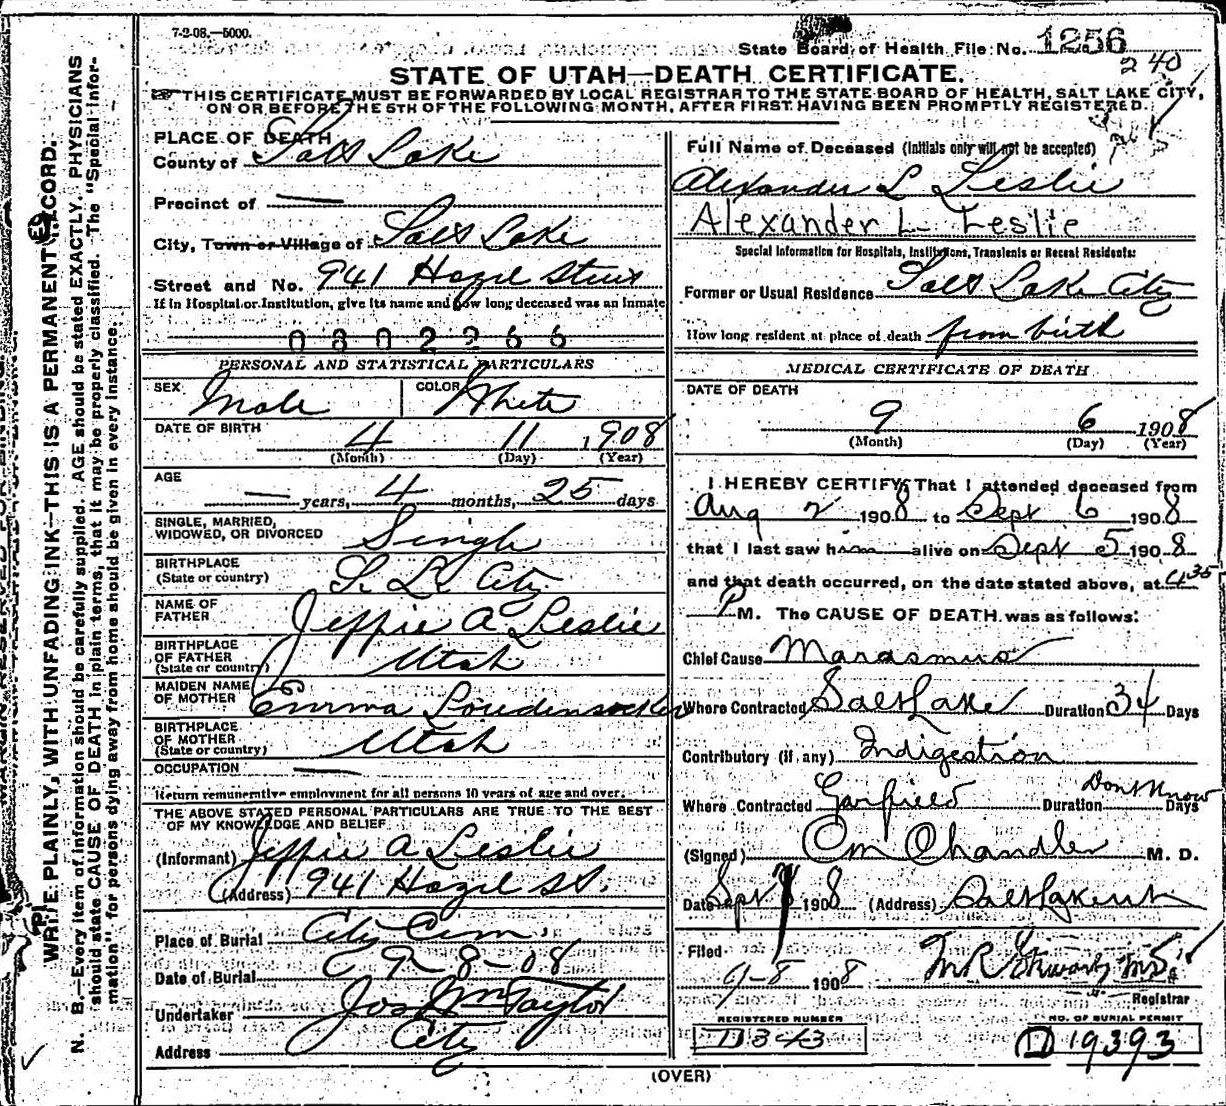 7-2-08.—5000.
State Board of Health File No. 1256
2 40
STATE OF UTAH—DEATH CERTIFICATE.
THIS CERTIFICATE MUST BE FORWARDED BY LOCAL REGISTRAR TO THE STATE BOARD OF HEALTH, SALT LAKE CITY,
ON OR BEFORE THE 5TH OF THE FOLLOWING MONTH, AFTER FIRST HAVING BEEN PROMPTLY REGISTERED.
WRITE PLAINLY, WITH UNFADING INK—THIS IS A PERMANENT RECORD.
N. B.—Every item of information should be carefully supplied. AGE should be stated EXACTLY. PHYSICIANS
should state CAUSE OF DEATH in plain terms, that it may be properly classified. The "Special Infor-
mation" for persons dying away from home should be given in every instance.
PLACE OF DEATH
County of Salt Lake
Precinct of —
City, Town or Village of Salt Lake
Street and No. 941 Hazel Street
If in Hospital or Institution, give its name and how long deceased was an inmate
0802266
PERSONAL AND STATISTICAL PARTICULARS
SEX Male COLOR White
DATE OF BIRTH
4 11 1908
(Month) (Day) (Year)
AGE
— years, 4 months, 25 days
SINGLE, MARRIED,
WIDOWED, OR DIVORCED Single
BIRTHPLACE
(State or country) S. L. City
NAME OF
FATHER Jeppie A Leslie
BIRTHPLACE
OF FATHER
(State or country) Utah
MAIDEN NAME
OF MOTHER Emma Loudensocker
BIRTHPLACE
OF MOTHER
(State or country) Utah
OCCUPATION —
Return remunerative employment for all persons 10 years of age and over.
THE ABOVE STATED PERSONAL PARTICULARS ARE TRUE TO THE BEST
OF MY KNOWLEDGE AND BELIEF
(Informant) Jeppie A Leslie
(Address) 941 Hazel St.
Place of Burial City Cem.
Date of Burial 9-8-08
Undertaker Jos Wm Taylor
Address City
Full Name of Deceased (Initials only will not be accepted)
Alexander L Leslie
Alexander L. Leslie
Special Information for Hospitals, Institutions, Transients or Recent Residents:
Former or Usual Residence Salt Lake City
How long resident at place of death from birth
MEDICAL CERTIFICATE OF DEATH
DATE OF DEATH
9 6 1908
(Month) (Day) (Year)
I HEREBY CERTIFY That I attended deceased from
Aug 2 1908 to Sept 6 1908
that I last saw him alive on Sept 5 1908
and that death occurred, on the date stated above, at 4 35
P M. The CAUSE OF DEATH was as follows:
Chief Cause Marasmus
Where Contracted Salt Lake Duration 34 Days
Contributory (if any) Indigestion
Where Contracted Garfield Duration Dont Know Days
(Signed) CM Chandler M. D.
Date Sept 1908 (Address) Salt Lake Ut
Filed
9-8 1908 M R Stewart MD
Registrar
REGISTERED NUMBER
D 343
NO. OF BURIAL PERMIT
D 19393
(OVER)